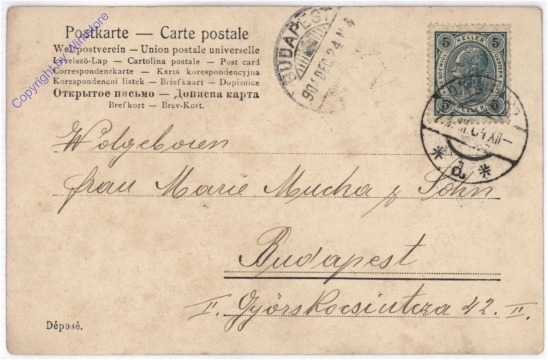 Postkarte — Carte postale
Weltpostverein — Union postale universelle
Levelező-Lap — Cartolina postale — Post card
Correspondenzkarte — Karta korespondencyjna
Korespondenční lístek — Briefkaart — Dopisnice
Открытое письмо — Дописна карта
Brefkort — Brev-Kort.
Copyright by Winstore
BUDAPEST
904 DEC 24
5 HELLER 5
5 5
Wolgeboren
frau Marie Mucha & Sohn
Budapest
II. Győrskocsiutcza 42. II.
Déposé.